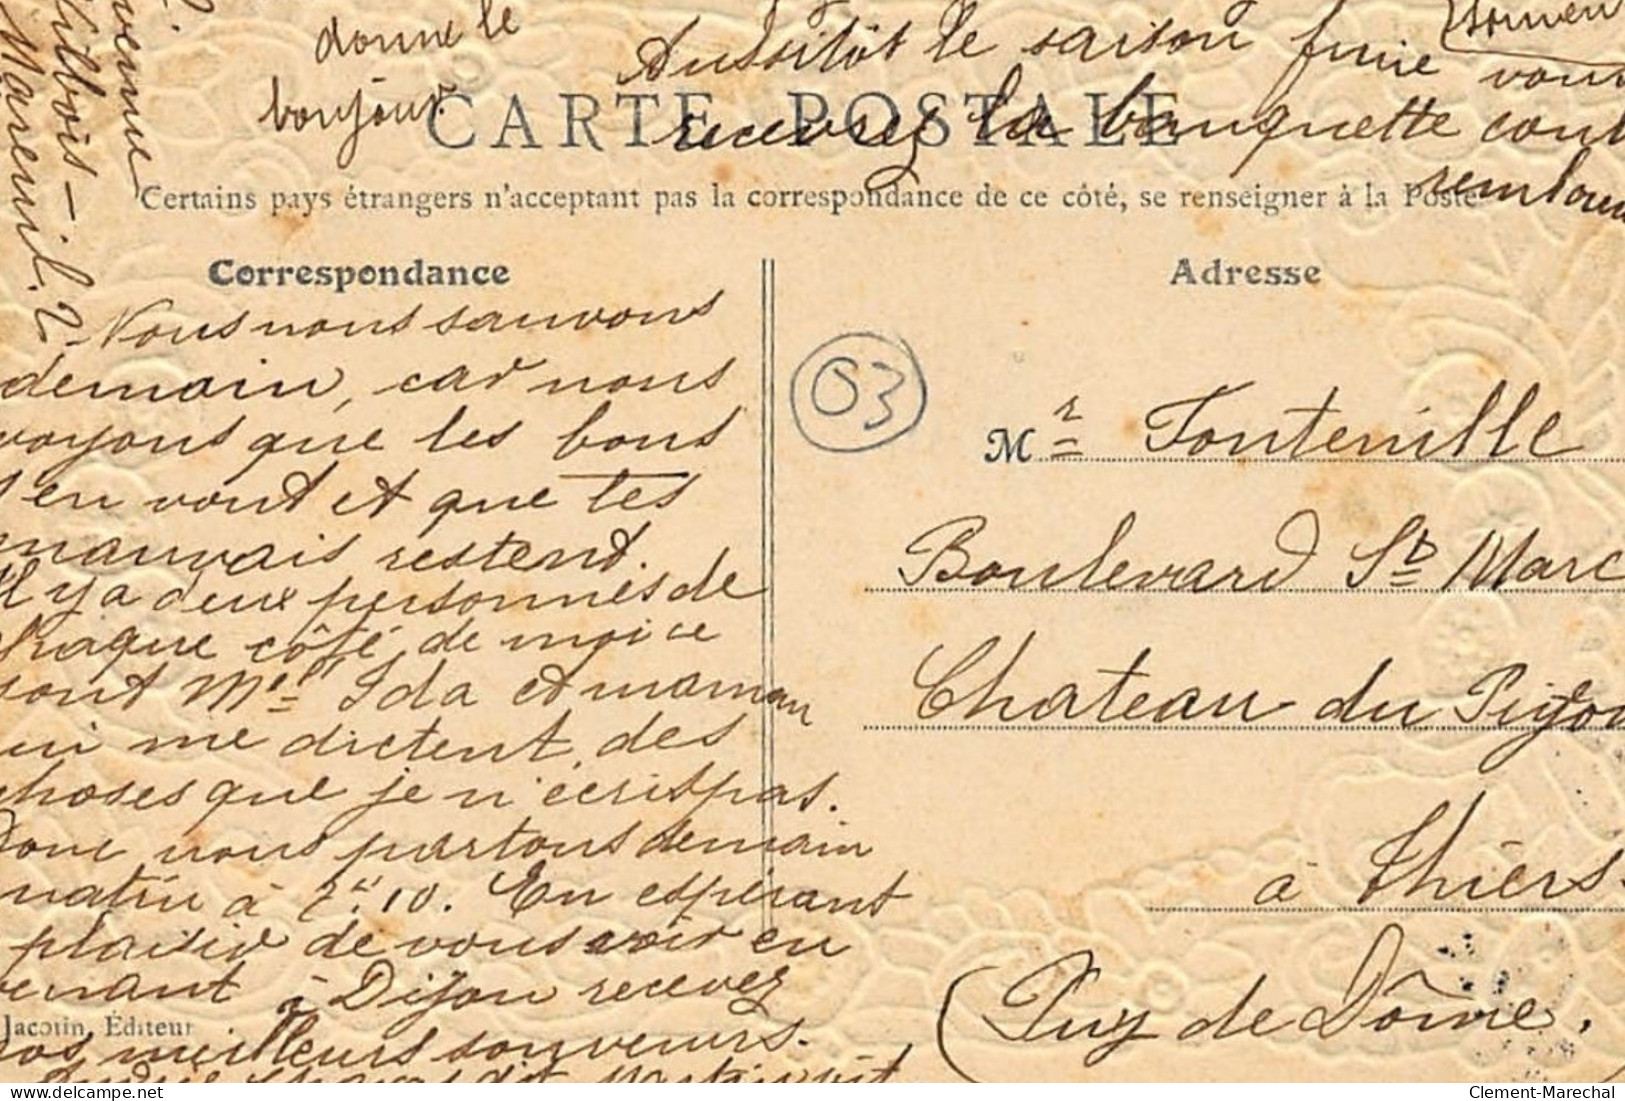 donne le
bonjour.
Aussitôt le saison finie vous
recevrez la banquette cont
rembour
CARTE POSTALE
Certains pays étrangers n'acceptent pas la correspondance de ce côté, se renseigner à la Poste
Correspondance
Nous nous sauvons
demain, car nous
voyons que les bons
s'en vont et que les
mauvais restent.
Il y a deux personnes de
chaque côté de moi ce
sont Mell Ida et maman
qui me dictent des
choses que je n'écris pas.
Donc nous partons demain
matin à 7h 10. En espérant
plaisir de vous voir en
venant à Dijon recevez
nos meilleurs souvenirs.
Jacotin, Éditeur
Adresse
03
Mr Fontenille
Boulevard St Marc
Chateau du Pigeon
à Thiers
(Puy de Dôme.
delcampe.net
Clement-Marechal